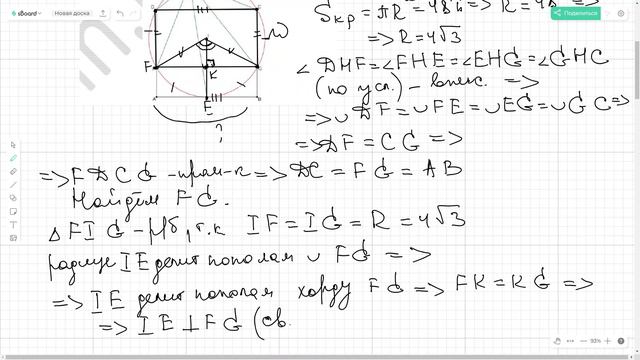 sBoard
Новая доска
Поделиться
Sкр = πR² = 48π => R² = 48 =>
=> R = 4√3
∠DHF = ∠FHE = ∠EHG = ∠GHC
(по усл.) – впис. =>
=> ∪DF = ∪FE = ∪EG = ∪GC =>
=> DF = CG =>
F
K
E
?
=> FDCG – прям-к => DC = FG = AB
Найдём FG.
△FIG – р/б, т.к IF = IG = R = 4√3
радиус IE делит пополам ∪FG =>
=> IE делит пополам хорду FG => FK = KG =>
=> IE ⊥ FG (св.
93%